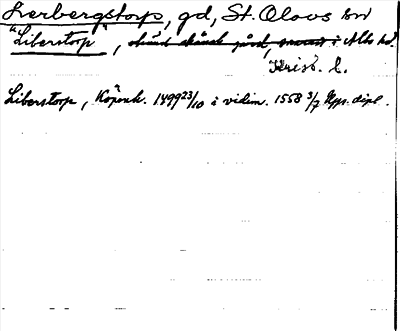 Lerbergstorp, gd, St. Olovs sn
"Liberstorp", i Albo hd.
Krist. l.
Liberstorp, Köpenh. 1499 23/10 i vidim. 1558 3/7 Upps. dipl.